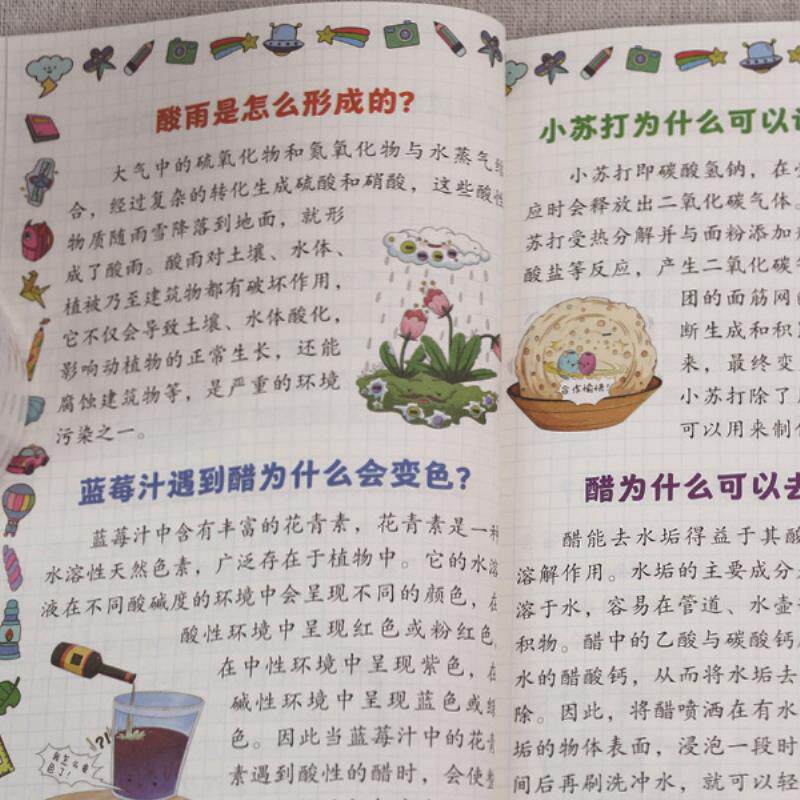 酸雨是怎么形成的？
大气中的硫氧化物和氮氧化物与水蒸气结
合，经过复杂的转化生成硫酸和硝酸，这些酸性
物质随雨雪降落到地面，就形
成了酸雨。酸雨对土壤、水体、
植被乃至建筑物都有破坏作用，
它不仅会导致土壤、水体酸化，
影响动植物的正常生长，还能
腐蚀建筑物等，是严重的环境
污染之一。
蓝莓汁遇到醋为什么会变色？
蓝莓汁中含有丰富的花青素，花青素是一种
水溶性天然色素，广泛存在于植物中。它的水溶
液在不同酸碱度的环境中会呈现不同的颜色，在
酸性环境中呈现红色或粉红色，
在中性环境中呈现紫色，在
碱性环境中呈现蓝色或绿
色。因此当蓝莓汁中的花青
素遇到酸性的醋时，会使整
?!
我怎么变
色了！
小苏打为什么可以
小苏打即碳酸氢钠，在
应时会释放出二氧化碳气体。
苏打受热分解并与面粉添加
酸盐等反应，产生二氧化碳
团的面筋网
断生成和积
来，最终变
小苏打除了
可以用来制
合作愉快！
醋为什么可以去
醋能去水垢得益于其酸
溶解作用。水垢的主要成分
溶于水，容易在管道、水壶
积物。醋中的乙酸与碳酸钙
水的醋酸钙，从而将水垢去
除。因此，将醋喷洒在有水
垢的物体表面，浸泡一段时
间后再刷洗冲水，就可以轻